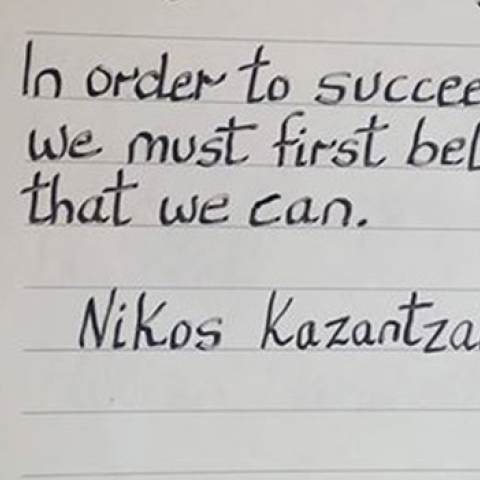 In order to succee
we must first bel
that we can.
Nikos Kazantza